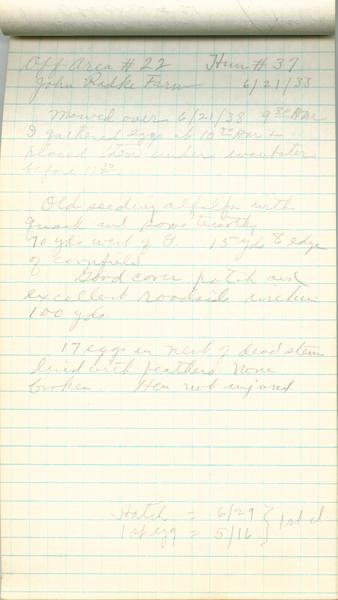 Off Area # 22 Hen # 37
John Radke Farm 6/21/38
Mowed over 6/21/38 9 30 AM
I gathered eggs at 10 30 AM +
placed them under incubator
before 11 30
Old seeding alfalfa with
quack and some timothy
70 yds west of G. 15 yds edge
of cornfield
Good cover patch and
excellent roadside within
100 yds
17 eggs in nest of dead stem
lined with feathers. None
broken Hen not injured
Hatch = 6/29
1st egg = 5/16 } 1st